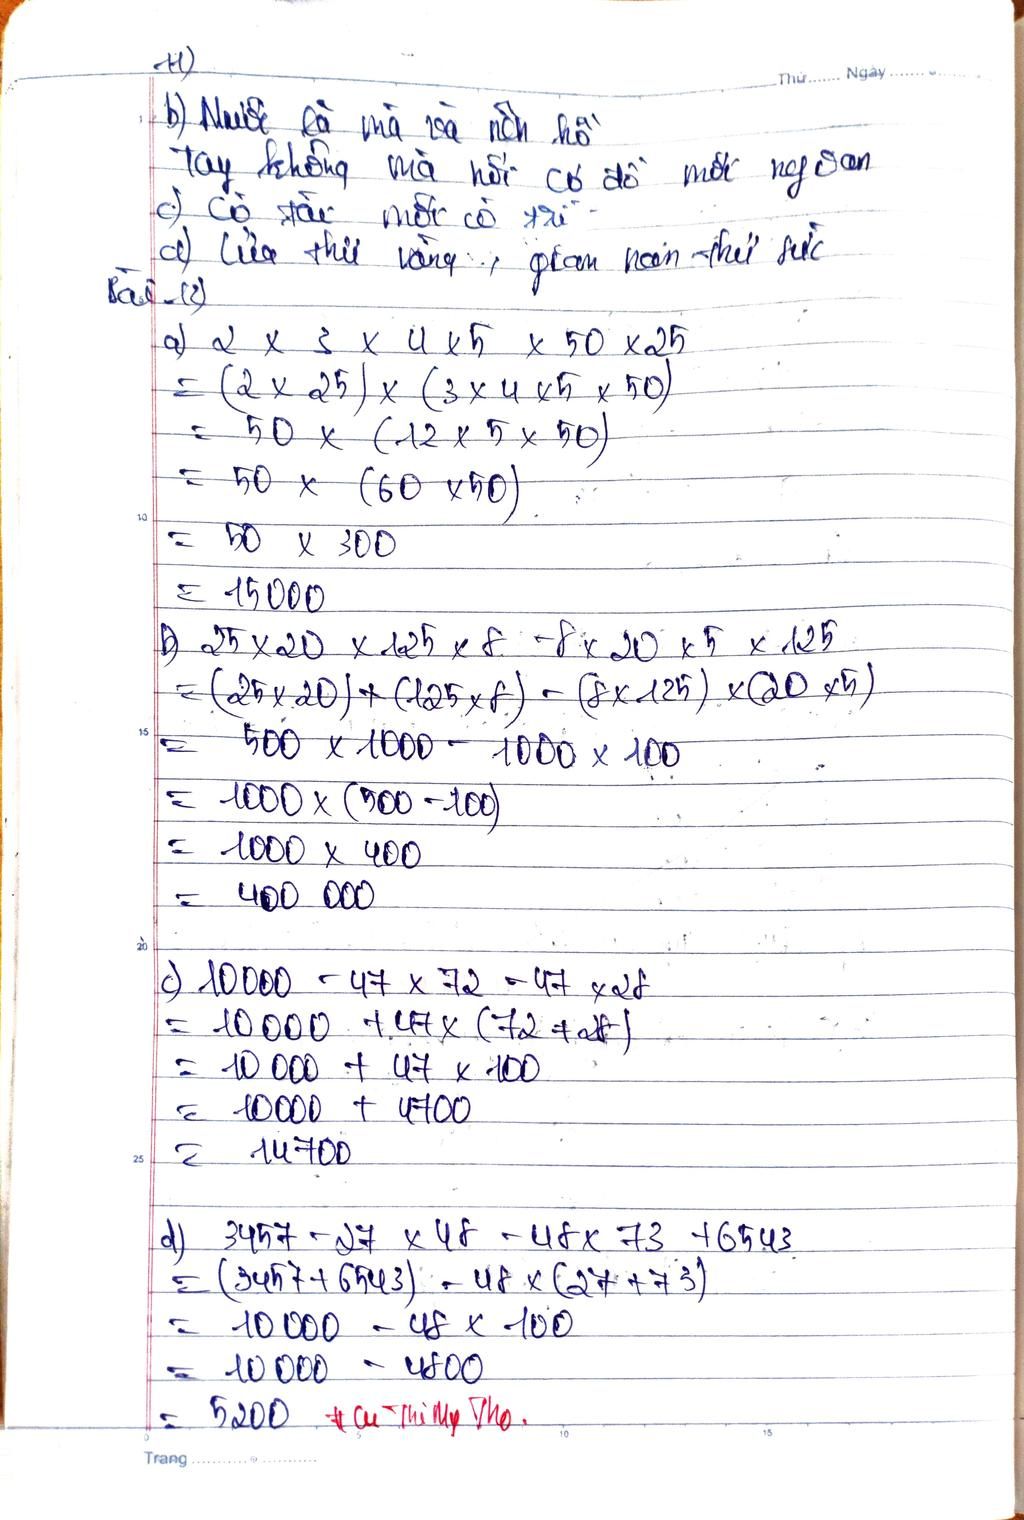 11)
Thứ....... Ngày ..............
b) Nước lã mà vã nên hồ
Tay không mà nổi cơ đồ mới ngoan
c) Có tài mới có trí
d) Lửa thử vàng, gian nan thử sức
Bài 12)
a) 2 x 3 x 4 x 5 x 50 x 25
= (2 x 25) x (3 x 4 x 5 x 50)
= 50 x (12 x 5 x 50)
= 50 x (60 x 50)
10
= 50 x 300
= 15000
b) 25 x 20 x 125 x 8 - 8 x 20 x 5 x 125
= (25 x 20) + (125 x 8) - (8 x 125) x (20 x 5)
15
= 500 x 1000 - 1000 x 100
= 1000 x (500 - 100)
= 1000 x 400
= 400 000
20
c) 10000 - 47 x 72 - 47 x 28
= 10000 + 47 x (72 + 28)
= 10 000 + 47 x 100
= 10000 + 4700
= 14700
25
d) 3457 - 27 x 48 - 48 x 73 + 6543
= (3457 + 6543) - 48 x (27 + 73)
= 10 000 - 48 x 100
= 10 000 - 4800
= 5200
0 5 10 15
Trang